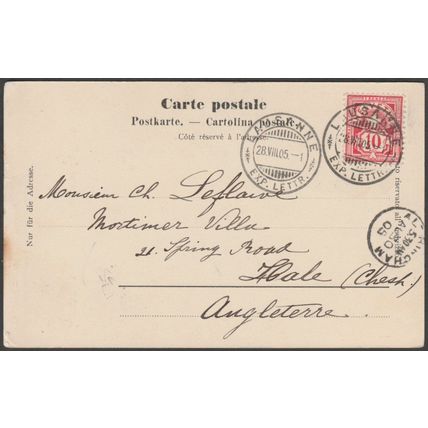 Carte postale
Postkarte. — Cartolina postale.
Côté réservé à l'adresse.
LAUSANNE
28.VIII.05.—1
EXP. LETTR.
LAUSANNE
EXP. LETTR.
10
Nur für die Adresse.
Monsieur Ch. Leflaive
Mortimer Villa
21. Spring Road
Hale (Chesh.)
Angleterre.
ALTRINCHAM
05